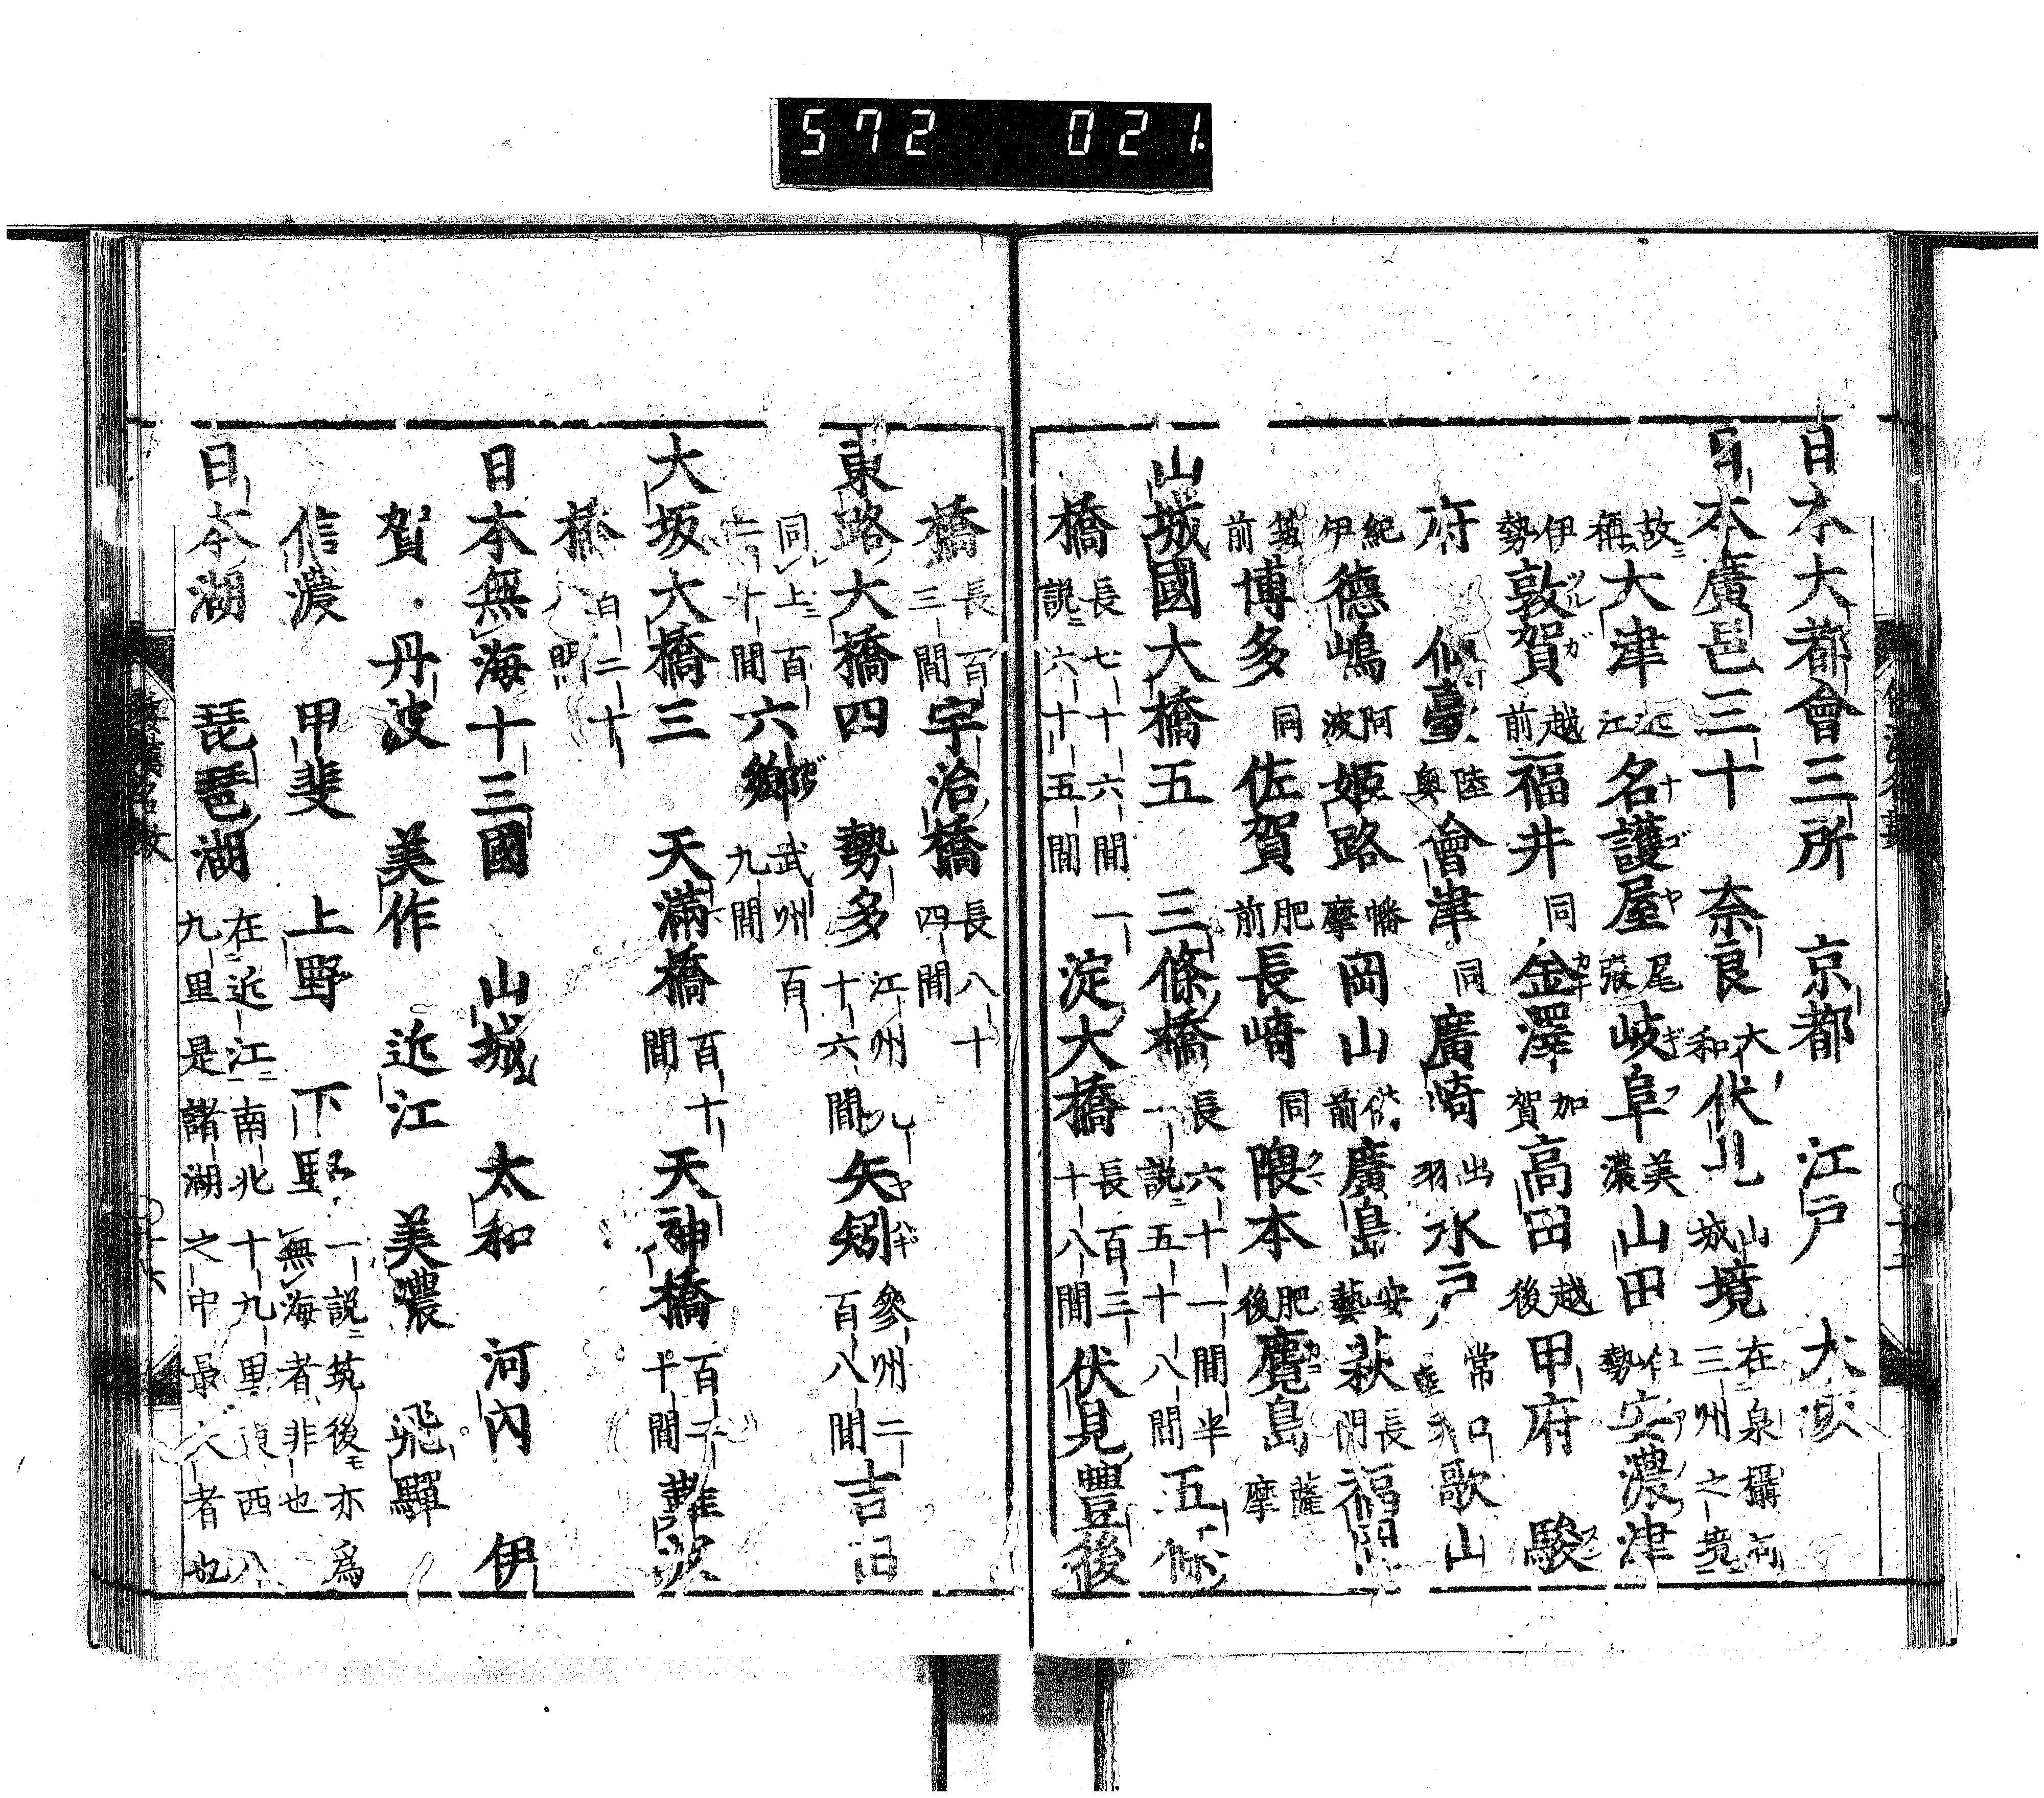 572 021
日本大都會三所 京都 江戸 大坂
日本廣邑三十 奈良 大和 伏見 山城 境 在泉攝河三州之境
故稱 大津 近江 名護屋 尾張 岐阜 美濃 山田 勢 安濃津
伊勢 敦賀 越前 福井 同 金澤 加賀 高田 越後 甲府 駿
府 仙臺 陸奥 會津 同 廣崎 出羽 水戸 常 歌山
紀伊 德嶋 阿波 姬路 幡摩 岡山 前 廣島 安藝 萩 長門 福岡
筑前 博多 同 佐賀 肥前 長崎 同 隈本 肥後 麑島 薩摩
山城國大橋五 三條橋 長六十一間半 一說二五十八間 五條
橋 長七十六間 一說二六十五間 淀大橋 長百三十八間 伏見豐後
橋 長百三間 宇治橋 長八十四間
東路大橋四 勢多 江州 九十六間 矢矧 參州二百八間 吉田
同上 百二十間 六鄉 武州 百九間
大坂大橋三 天滿橋 百十間 天神橋 百二十間 難波
橋 百二十八間
日本無海十三國 山城 太和 河內 伊
賀 丹波 美作 近江 美濃 飛驒
信濃 甲斐 上野 下野 一說二筑後モ亦爲無海者非也
日本湖 琵琶湖 在近江南北十九里東西八九里是諸湖之中最大者也